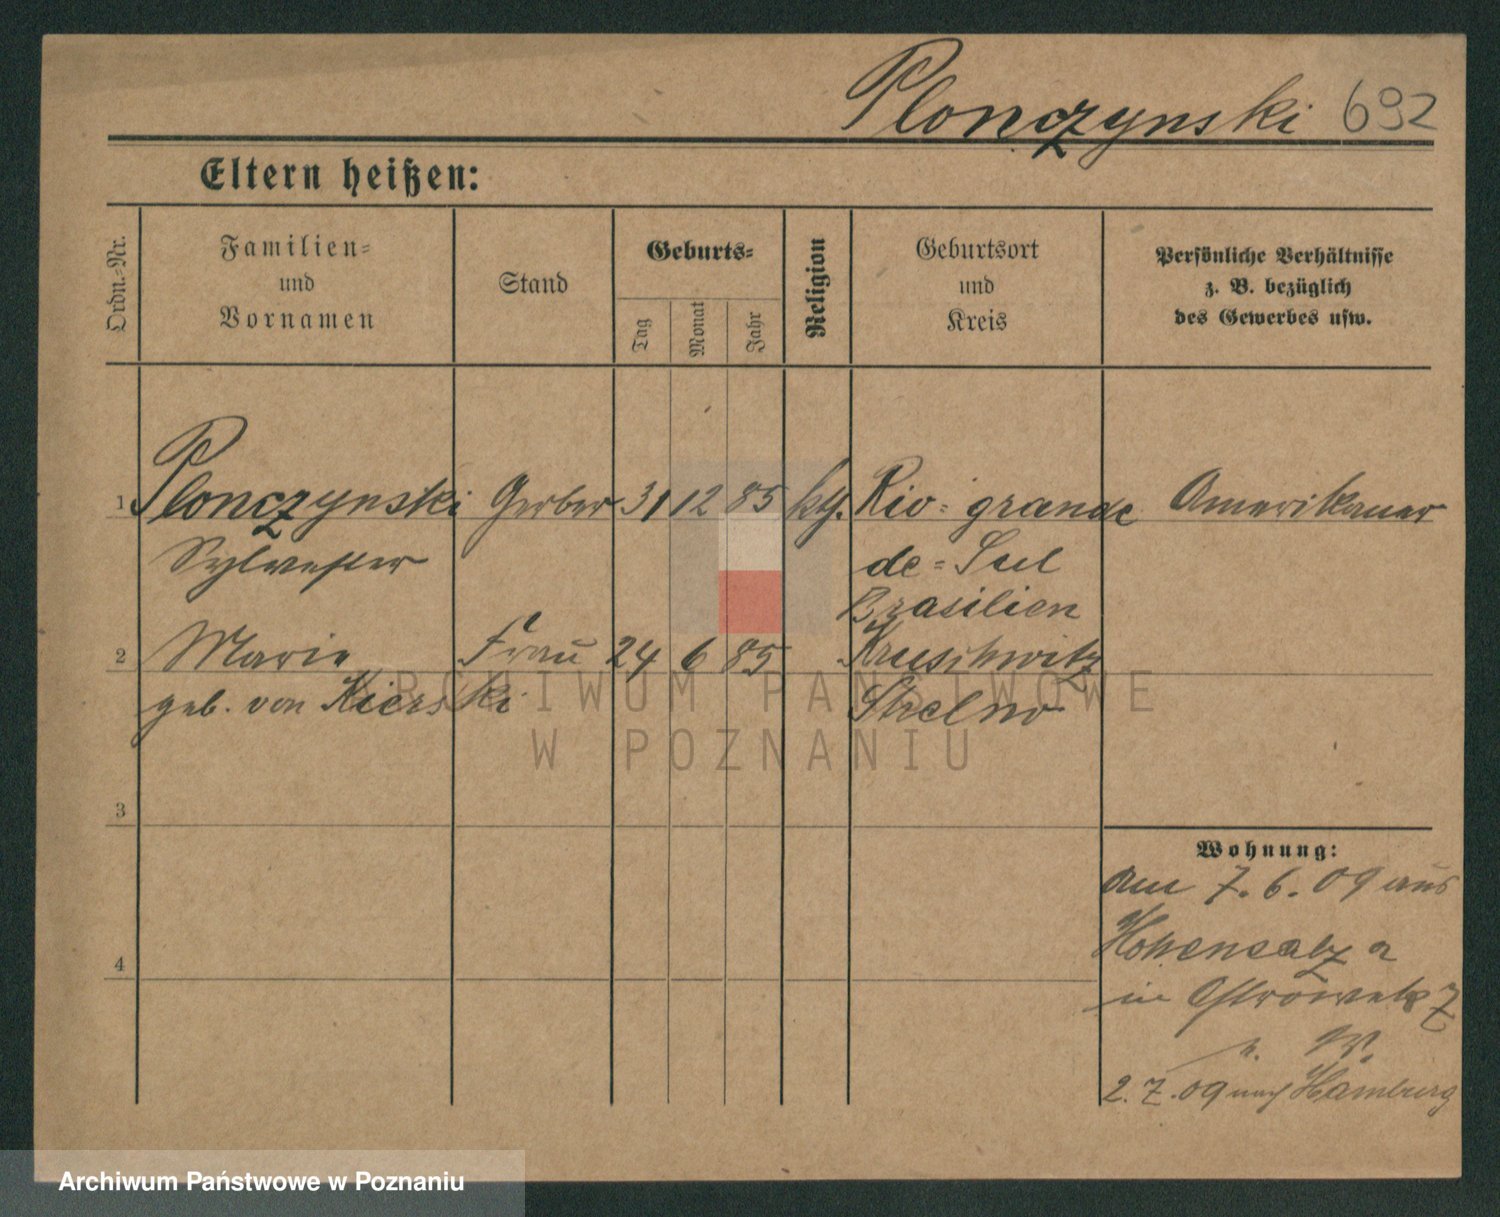 Plonczynski 692
Eltern heißen:
Ordn.-Nr.
Familien-
und
Vornamen
Stand
Geburts-
Tag
Monat
Jahr
Religion
Geburtsort
und
Kreis
Persönliche Verhältnisse
z. B. bezüglich
des Gewerbes usw.
1 Plonczynski Gerber 31 12 85 kth. Rio-grande Amerikaner
Sylvester de-Sul
Brasilien
2 Marie Frau 24 6 85 Kruschwitz
geb. von Kierski Strelno
3
4
Wohnung:
am 7.6.09 aus
Hohensalza
in Ostrowek 7
n. W.
2.7.09 nach Hamburg
ARCHIWUM PAŃSTWOWE
W POZNANIU
Archiwum Państwowe w Poznaniu